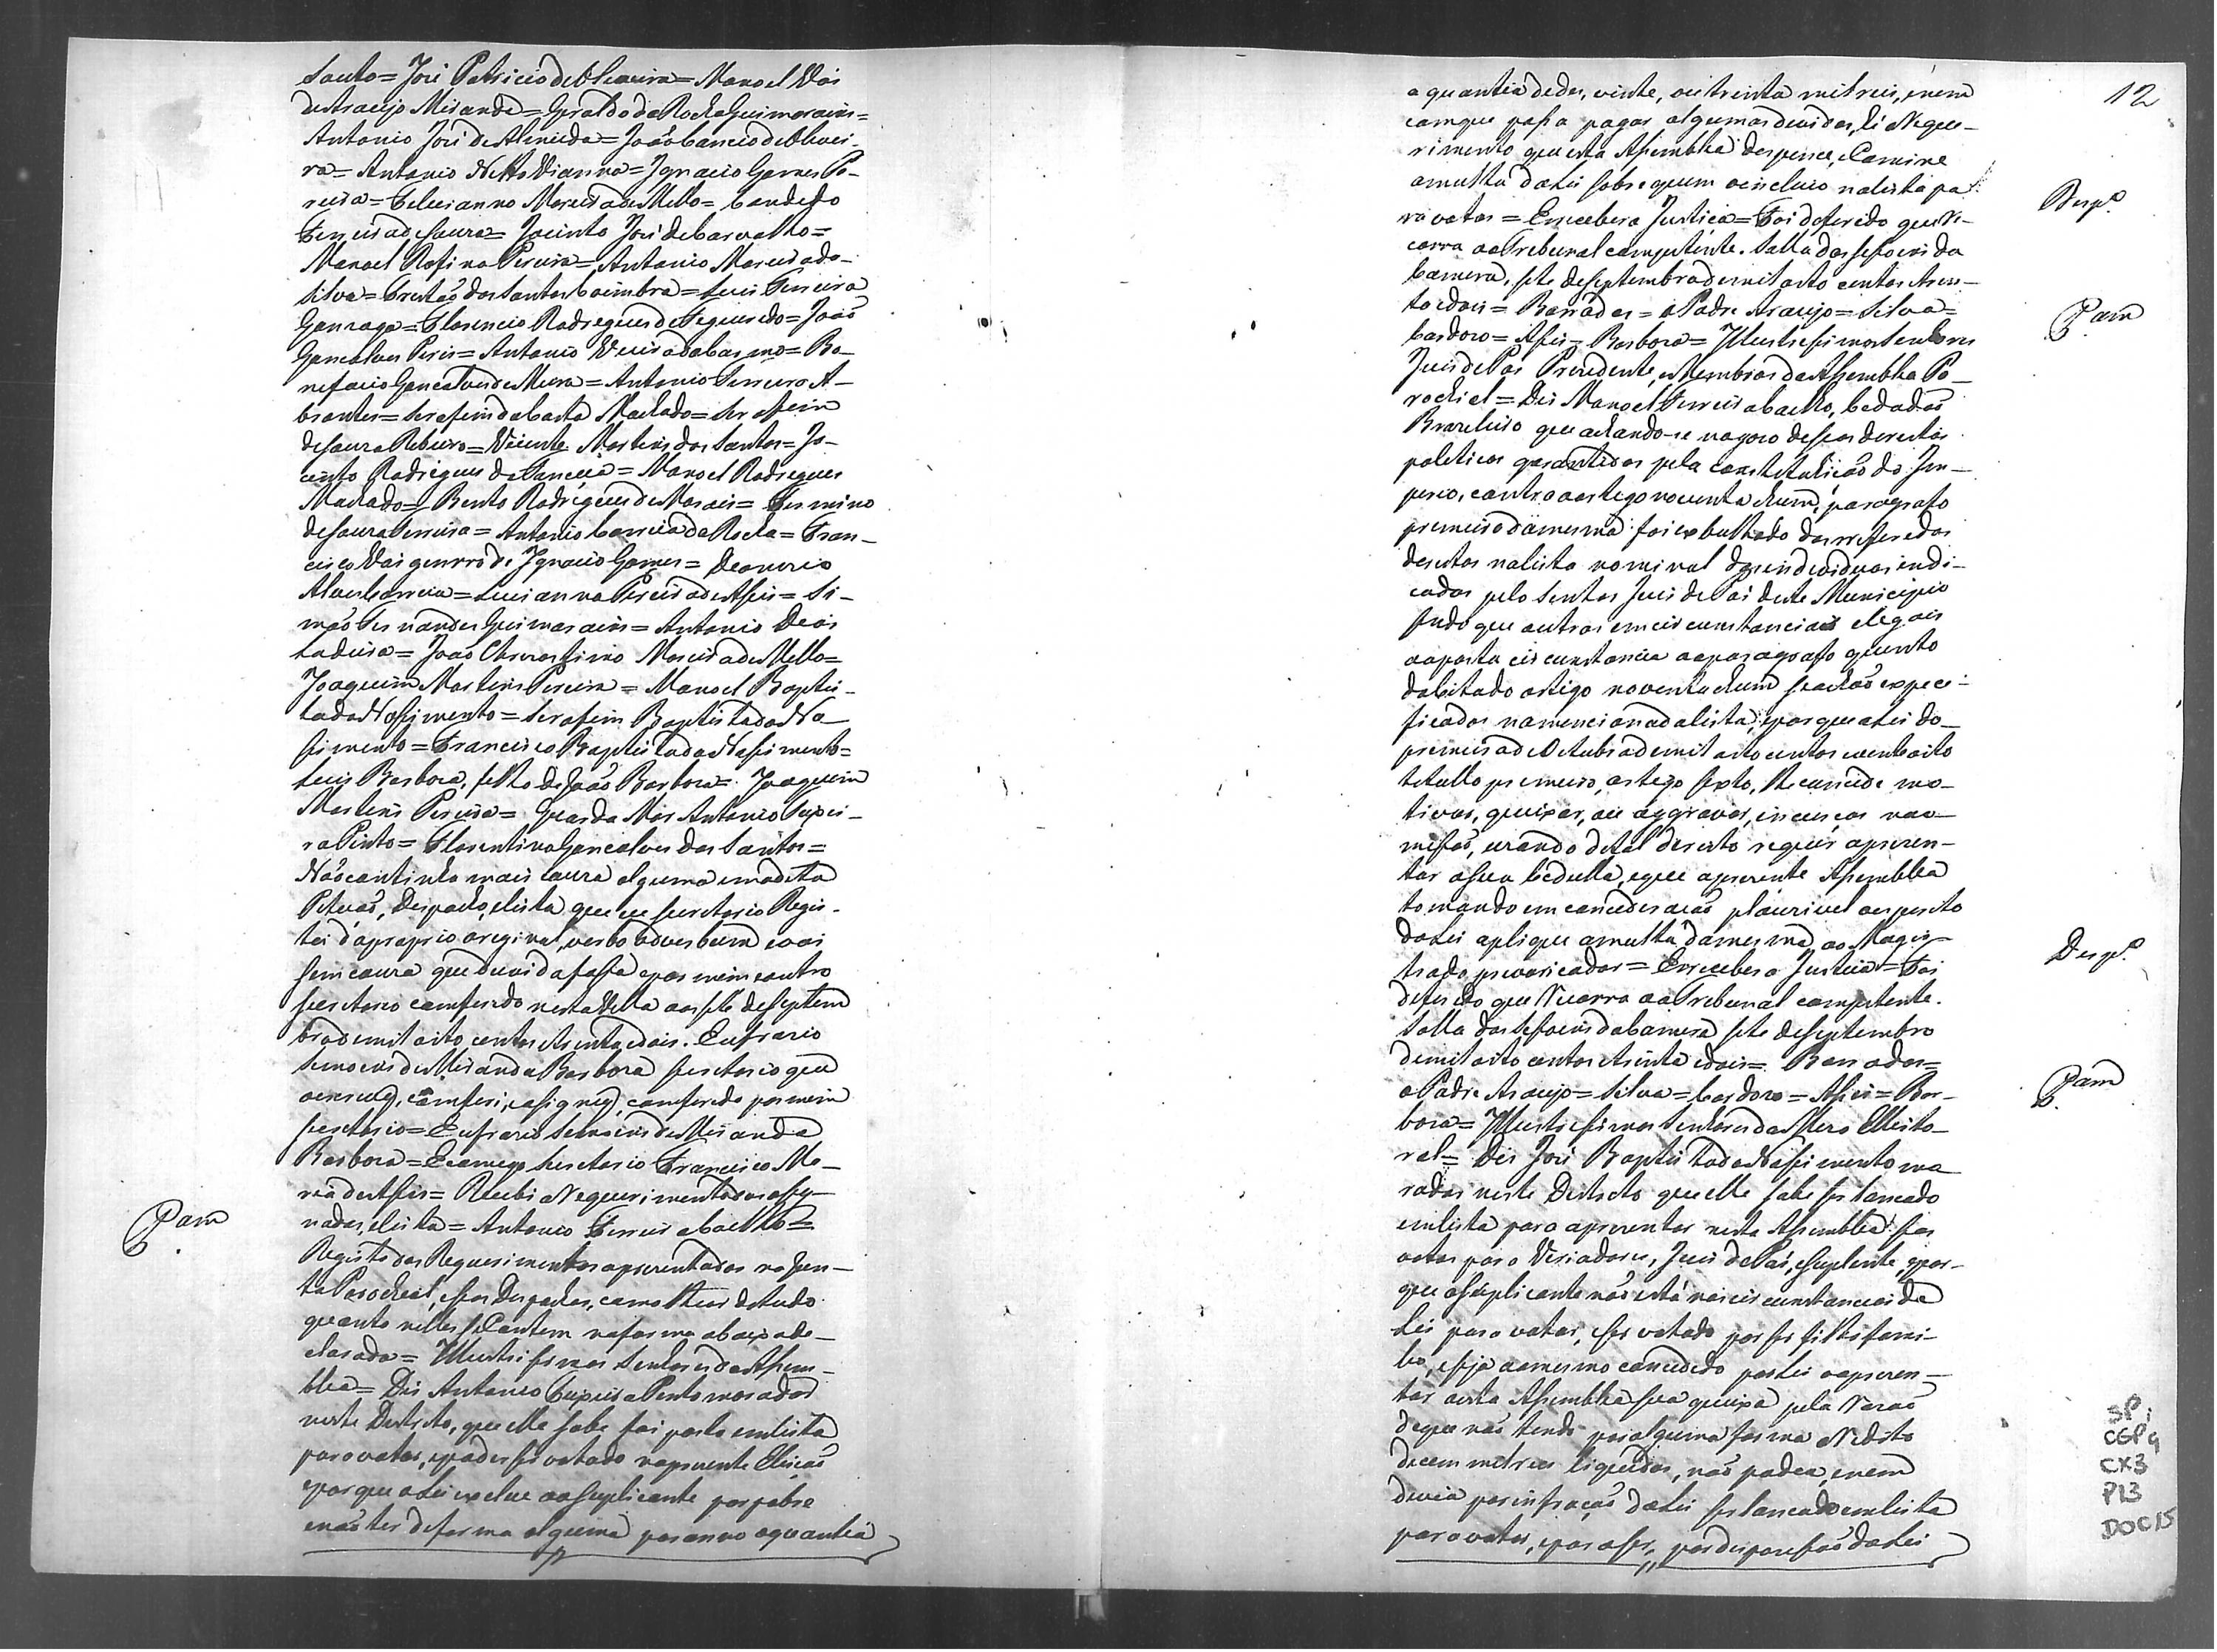 Souto = José Patricio de Oliveira = Manoel Vás
de Araujo Miranda = Geraldo da Rocha Guimarains =
Antonio José de Almeida = João Cancio de Olivei-
ra = Antonio Netto Vianna = Ignacio Gomes Pe-
reira = Feliciano Moreira de Mello = Candido
Ferreira de Souza = Jacinto José de Carvalho =
Manoel Rofino Pereira = Antonio Moreira da
Silva = Cristão dos Santos Coimbra = Luis Ferreira
Gonzaga = Florencio Rodrigues de Figueredo = João
Goncalves Pires = Antonio Vieira do Carmo = Bo-
nefacio Goncalves de Meira = Antonio Ferreira A-
brantes = Serafim da Costa Machado = Serafim
de Souza Ribeiro = Vicente Martins dos Santos = Ja-
cinto Rodrigues da Fonceca = Manoel Rodrigues
Machado = Bento Rodrigues de Morais = Fermino
de Souza Ferreira = Antonio Correia da Rocha = Fran-
cisco Vás genrro de Ignacio Gomes = Deonizio
Alves Correia = Lucianno Pereira de Assis = Si-
mão Fernandes Guimarains = Antonio Deos
tadeira = João Chrizostimo Moreira de Mello =
Joaquim Martins Pereira = Manoel Baptis-
ta do Nassimento = Serafim Baptista do Na-
simento = Francisco Baptista do Nassimento =
Luis Barboza, filho de João Barboza = Joaquim
Martins Pereira = Guarda Mór Antonio Teixei-
ra Pinto = Florentino Goncalves dos Santos =
Não continha mais couza alguma em a dita
Petição, Despacho, e lista que eu Secretario Regis-
tei da proprio original, verbo adverbum e vai
sem couza que duvida fassa e por mim e outro
Secretario comferido nesta Villa aos sete de Septem
bro de mil oito centos e trinta e dois. Eufrazio
Semoens de Miranda Barboza Secretario que
o escrevy, comferi, e asigney, comferido por mim
Secretario = Eufrazio Semoens de Miranda
Barboza = E comigo Secretario Francisco Ma-
ria de Assis = Recebi o Requerimento dos assig-
nados, e lista = Antonio Ferreira Coelho =
Registo dos Requerimentos aprezentados na Jun-
ta Parochial, e seos Despachos, como theor de tudo
quanto nelles se Contem na forma abaixo de-
clarada = Illustrissimos Senhores da Assem-
blea = Dis Antonio Teixeira Pinto morador
neste Destricto, que elle sabe foi posto em lista
para votar, e poder ser votado na prezente Eleição
e por que a Lei exclue ao Suplicante por pobre
e não ter de forma alguma por anno a quantia
Pam
12
a quantia de des, vinte, ou trinta mil reis, e nem
com que possa pagar algumas dividas, hé Reque-
rimento que esta Assemblea despence, e Comine
a multa da Lei sobre quem o incluio na lista pa-
ra votar = E recebera Justiça = Foi deferido que Re-
corra ao Tribunal competente. Salla das Sessoens da
Camera, sete de Septembro de mil oito centos e trin-
ta e dois = Barrados = o Padre Araujo = Silva =
Cardozo = Assis = Barboza = Illustrissimos Senhores
Juis de Pás Prezidente, e Membros da Assemblea Pa-
rochial = Dis Manoel Ferreira Coelho, Cedadão
Brazileiro que achando-se no gozo de seos dereitos
politicos garantidos pela constetuição do Im-
perio, contra o artigo noventa e hum, paragrafo
premeiro da mesma foi exbulhado dos referedos
dereitos na lista nominal dos individuos indi-
cados pelo Senhor Juis de Pás deste Municipio
sendo que outros em circunstancias elegais
ooposta circunstancia ao paragrafo quinto
do Citado artigo noventa e hum se achão especi-
ficados na mencionada lista, e por que a Lei do
premeiro de Octubro de mil oito centos e vinte oito
tetullo premeiro, artigo sexto, lhe concide mo-
tivos, queixas, ou aggravos, in cujos nao
missão, uzando de tal direito requér aprezen-
tar a sua Cedulla, e que a prezente Assemblea
tomando em conciderasão plauzivel o espirito
da Lei aplique a multa da mesma ao Magis-
trado prevaricador = E recebera Justiça = Foi
deferido que Recorra ao Tribunal competente.
Salla das Sessoens da Camera sete de Septembro
de mil oito centos e trinta e dois = Barrados =
o Padre Araujo = Silva = Cardozo = Assis = Bar-
boza = Illustrissimos Senhores da Meza Elleito-
ral = Dis José Baptista do Nassimento mo
rador neste Destricto que elle sabe ser lancado
em lista para aprezentar nesta Assemblea seos
votos para Veriadores, Juis de Pás, e Suplente, e por-
que o Suplicante não está nas circunstancias da
Lei para votar, e ser votado por ser filho fami-
lio, e seja ao mesmo concedido por Lei o aprezen-
tar a esta Assemblea sua queixa pela Razão
de que não tendo por alguma forma o Redito
de cem mil reis liquidos, não podia, e nem
devia por infração da Lei ser lancado em lista
para votar, e por asser, por despozissão da Lei
Desp.º
Pam
Desp.º
Pam
SPi
CGP 9
CX3
P13
DOC 15